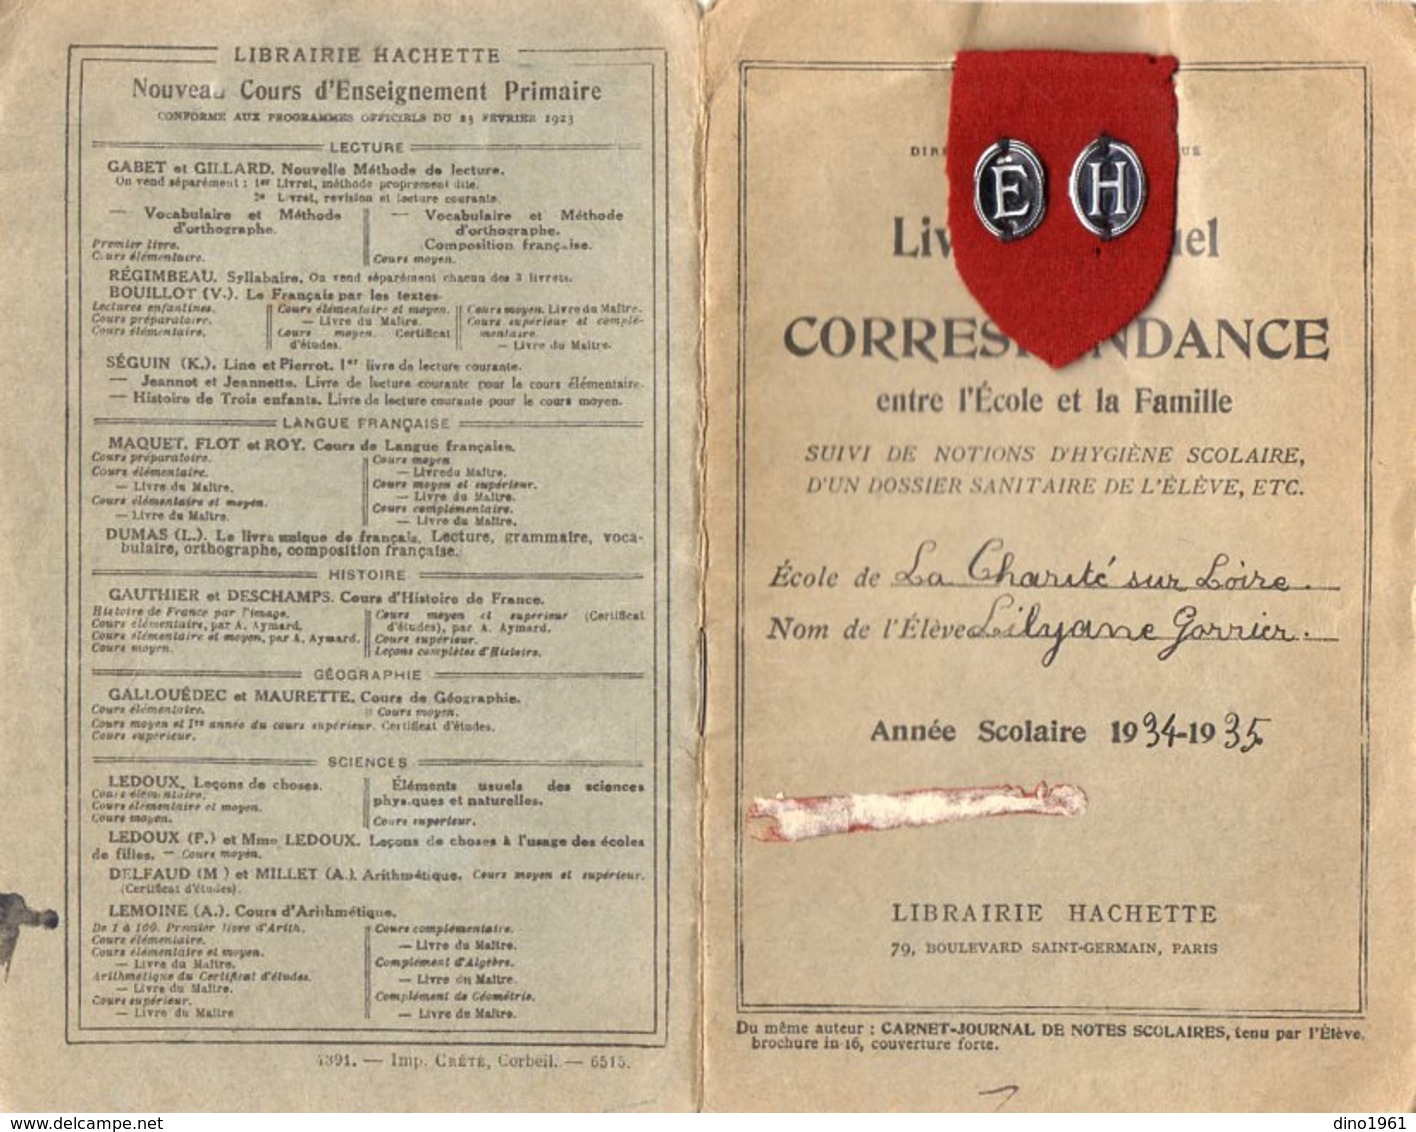 LIBRAIRIE HACHETTE
Nouveau Cours d'Enseignement Primaire
CONFORME AUX PROGRAMMES OFFICIELS DU 23 FÉVRIER 1923
LECTURE
GABET et GILLARD. Nouvelle Méthode de lecture.
On vend séparément : 1er Livret, méthode proprement dite.
2e Livret, revision et lecture courante.
— Vocabulaire et Méthode d'orthographe.
Premier livre.
Cours élémentaire.
— Vocabulaire et Méthode d'orthographe.
Composition française.
Cours moyen.
RÉGIMBEAU. Syllabaire. On vend séparément chacun des 3 livrets.
BOUILLOT (V.). Le Français par les textes.
Lectures enfantines.
Cours préparatoire.
Cours élémentaire.
Cours élémentaire et moyen.
— Livre du Maître.
Cours moyen. Certificat
d'études.
Cours moyen. Livre du Maître.
Cours supérieur et complé-
mentaire.
— Livre du Maître.
SÉGUIN (K.). Line et Pierrot. 1er livre de lecture courante.
— Jeannot et Jeannette. Livre de lecture courante pour le cours élémentaire.
— Histoire de Trois enfants. Livre de lecture courante pour le cours moyen.
LANGUE FRANÇAISE
MAQUET, FLOT et ROY. Cours de Langue française.
Cours préparatoire.
Cours élémentaire.
— Livre du Maître.
Cours élémentaire et moyen.
— Livre du Maître.
Cours moyen
— Livre du Maître.
Cours moyen et supérieur.
— Livre du Maître.
Cours complémentaire.
— Livre du Maître.
DUMAS (L.). Le livre unique de français. Lecture, grammaire, voca-
bulaire, orthographe, composition française.
HISTOIRE
GAUTHIER et DESCHAMPS. Cours d'Histoire de France.
Histoire de France par l'image.
Cours élémentaire, par A. Aymard.
Cours élémentaire et moyen, par A. Aymard.
Cours moyen.
Cours moyen et supérieur (Certificat
d'études), par A. Aymard.
Cours supérieur.
Leçons complètes d'Histoire.
GÉOGRAPHIE
GALLOUÉDEC et MAURETTE. Cours de Géographie.
Cours élémentaire.
Cours moyen.
Cours moyen et 1re année du cours supérieur. Certificat d'études.
Cours supérieur.
SCIENCES
LEDOUX. Leçons de choses.
Cours élémentaire.
Cours élémentaire et moyen.
Cours moyen.
Éléments usuels des sciences
physiques et naturelles.
Cours supérieur.
LEDOUX (P.) et Mme LEDOUX. Leçons de choses à l'usage des écoles
de filles. — Cours moyen.
DELFAUD (M.) et MILLET (A.). Arithmétique. Cours moyen et supérieur.
(Certificat d'études).
LEMOINE (A.). Cours d'Arithmétique.
De 1 à 100. Premier livre d'Arith.
Cours élémentaire.
Cours élémentaire et moyen.
— Livre du Maître.
Arithmétique du Certificat d'études.
— Livre du Maître.
Cours supérieur.
— Livre du Maître
Cours complémentaire.
— Livre du Maître.
Complément d'Algèbre.
— Livre du Maître.
Complément de Géométrie.
— Livre du Maître.
4391. — Imp. CRÉTÉ, Corbeil. — 6515.
Ë H
CORRES NDANCE
entre l'École et la Famille
SUIVI DE NOTIONS D'HYGIÈNE SCOLAIRE,
D'UN DOSSIER SANITAIRE DE L'ÉLÈVE, ETC.
École de La Charité sur Loire.
Nom de l'Élève Lilyane Gorrier.
Année Scolaire 1934-1935
LIBRAIRIE HACHETTE
79, BOULEVARD SAINT-GERMAIN, PARIS
Du même auteur : CARNET-JOURNAL DE NOTES SCOLAIRES, tenu par l'Élève,
brochure in-16, couverture forte.
www.delcampe.net
dino1961